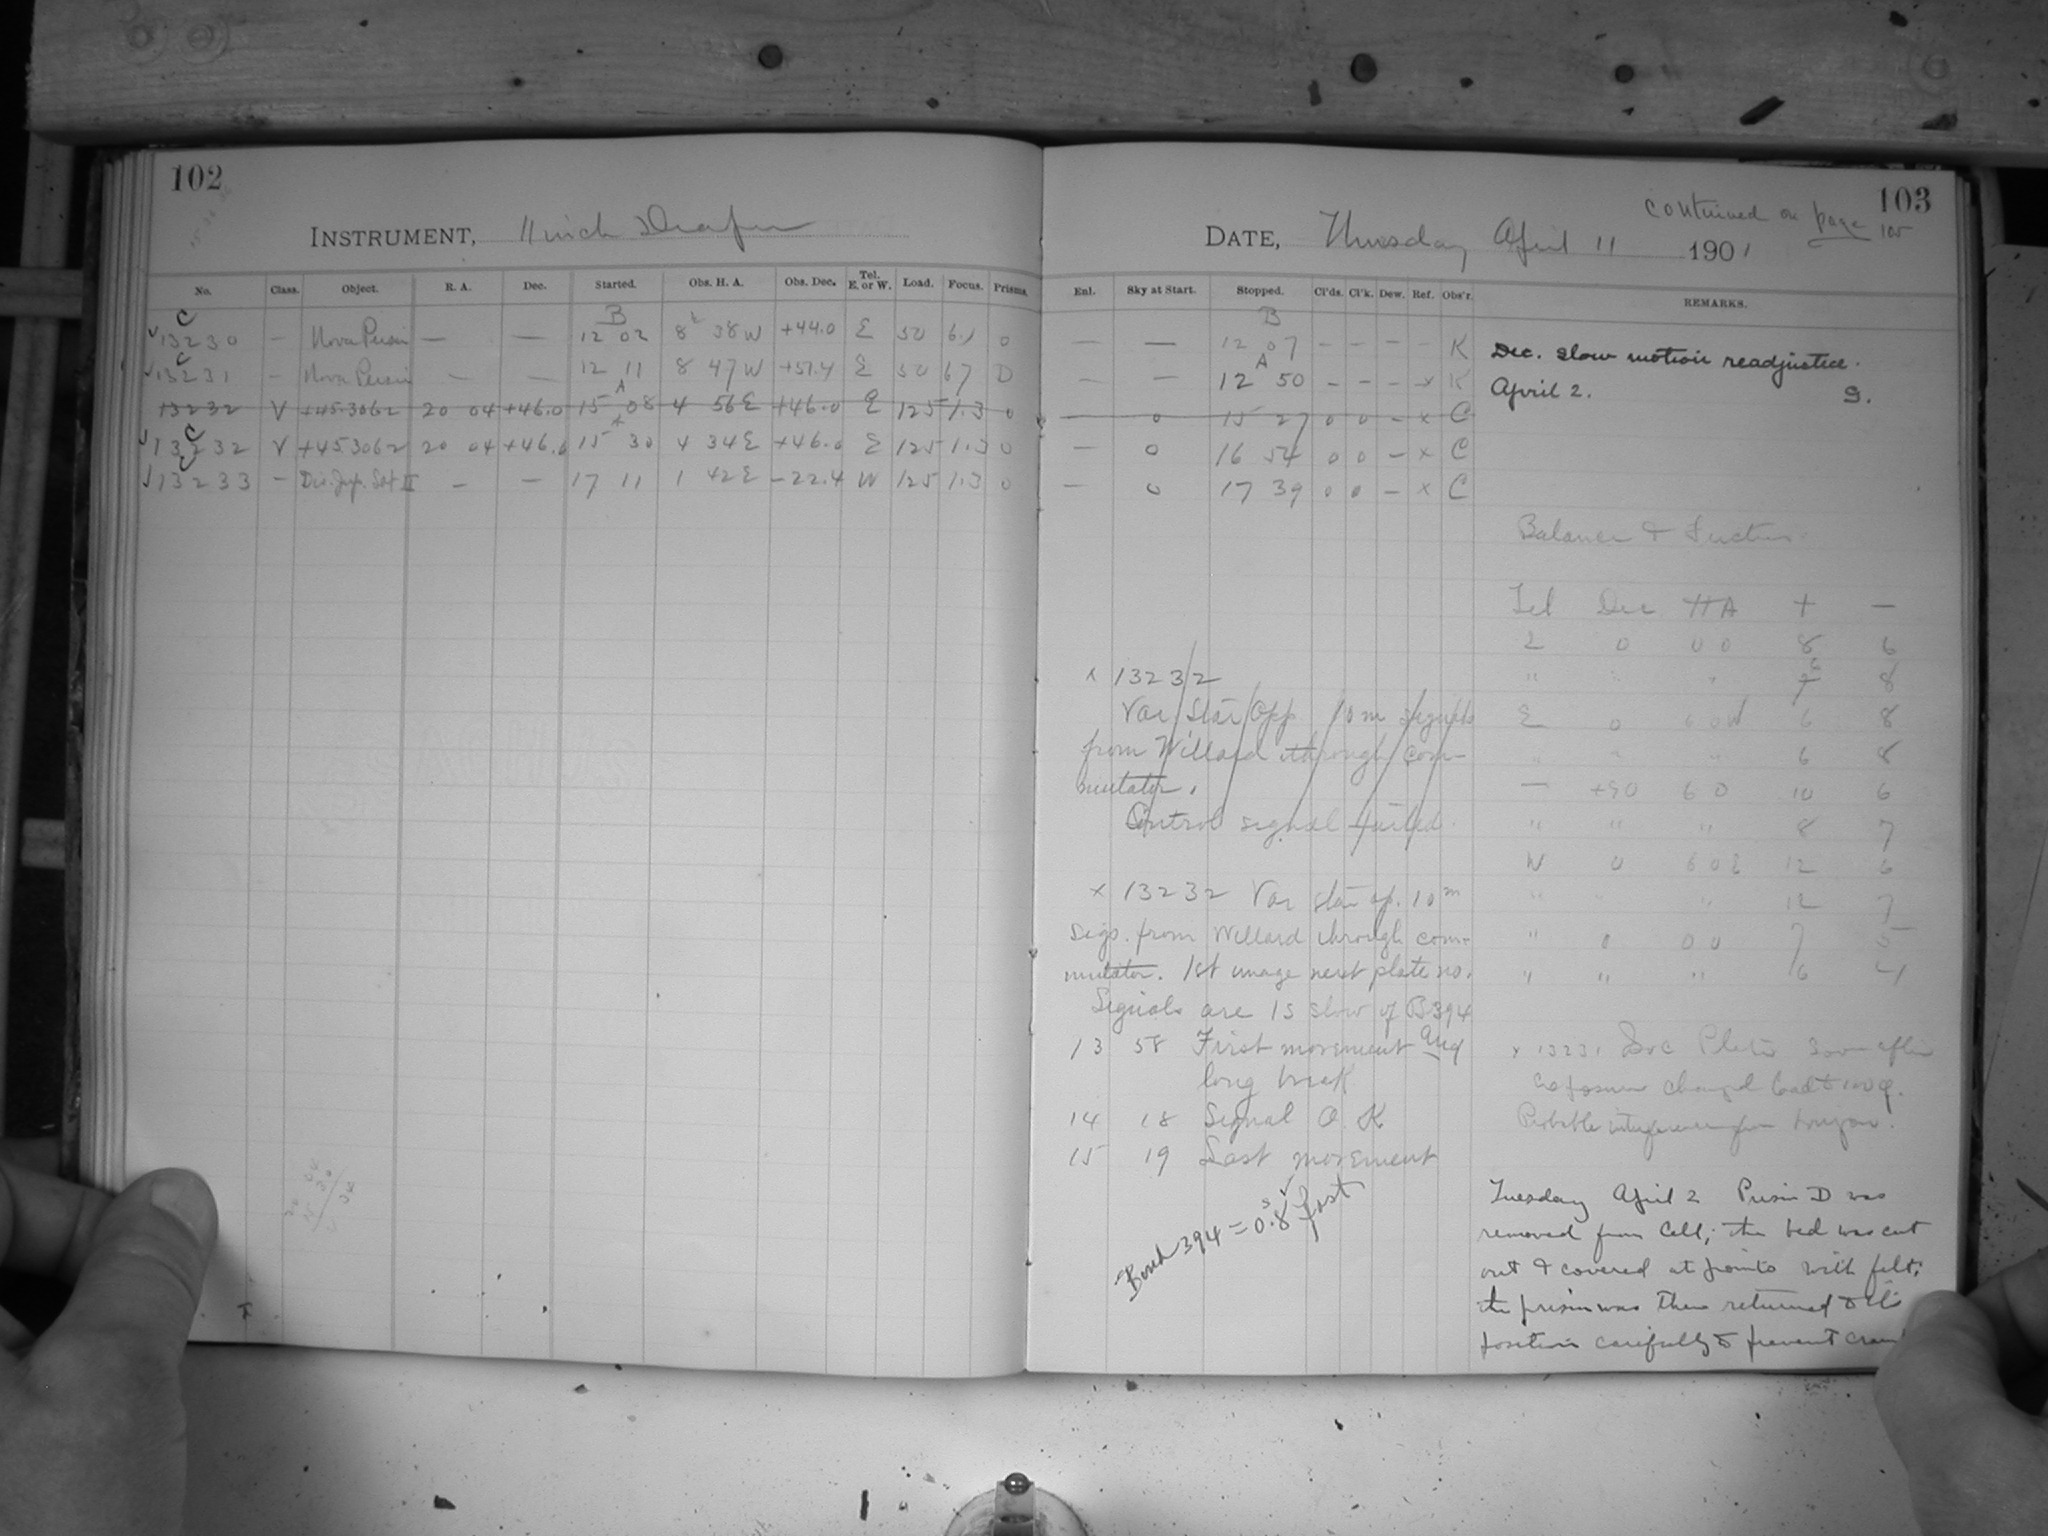 102
INSTRUMENT, 11 inch Draper
No. Class. Object. R. A. Dec. Started. Obs. H. A. Obs. Dec. Tel. E. or W. Load. Focus. Prisms.
C B
√13230 — Nova Persei — — 12 02 8h 38W +44.0 E 50 6.1 0
C
√13231 — Nova Persei — — 12 11 8 47W +51.4 E 50 6 7 D
A
13232 V +45.3062 20 04 +46.0 15 08 4 56E +46.0 E 125 1.3 0
C A
√13232 V +45.3062 20 04 +46.0 15 30 4 34E +46.0 E 125 1.3 0
C
√13233 — Dis. Jup. Sat II — — 17 11 1 42E -22.4 W 125 1.3 0
continued on page 105
103
DATE, Thursday April 11 1901
Enl. Sky at Start. Stopped. Cl'ds. Cl'k. Dew. Ref. Obs'r. REMARKS.
B
— — 12 07 — — — — K
A
— — 12 50 — — — x K
— 0 15 27 0 0 — x C
— 0 16 54 0 0 — x C
— 0 17 39 0 0 — x C
Dec. slow motion readjusted.
April 2. S.
Balance & Friction.
Tel Dec HA + —
E 0 0 0 8 6
" " " 8
E 0 6 0W 6 8
" " " 6 8
— +90 6 0 10 6
" " " 8 7
W 0 6 0E 12 6
" " " 12 7
" 0 0 0 7 5
" " " 6 4
x 13232
Var Star Opp 10m signals
from Willard through com-
mutator.
Control signal failed.
x 13232 Var star op. 10m
sigs. from Willard through com-
mutator. 1st image next plate no.
Signals are 1s slow of B394
13 58 First movement
long break
14 18 Signal O. K
15 19 Last movement
Bond 394 = 0s.8 fast
x 13231 Plate soon after
exposure changed load to 100g.
Probable interference from horizon.
Tuesday April 2 Prism D was
removed from Cell; the bed was cut
out & covered at points with felt;
the prism was then returned to its
position carefully to prevent